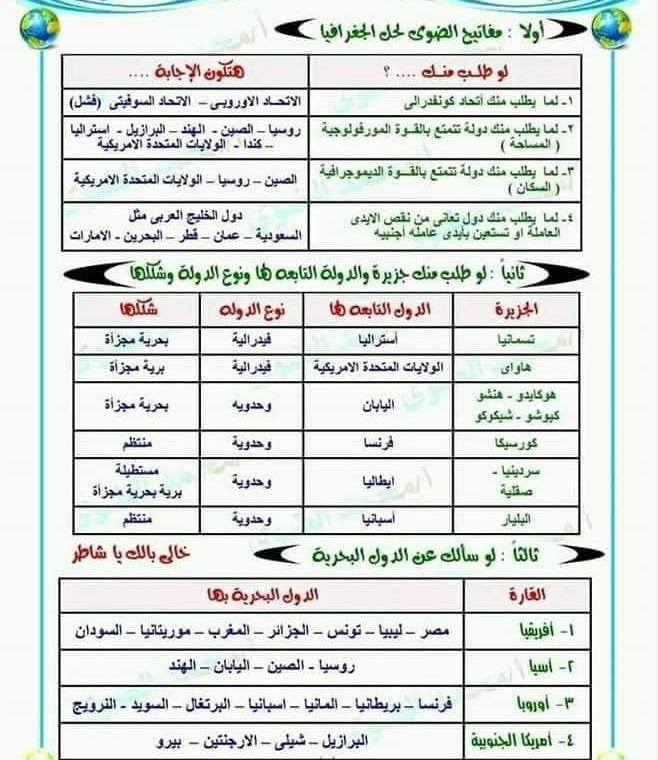 أولا : مفاتيح الضوى لحل الجغرافيا
لو طلب منك .... ؟ هتكون الإجابة ....
١- لما يطلب منك أتحاد كونفدرالى الاتحاد الاوروبى – الاتحاد السوفيتى (فشل)
٢- لما يطلب منك دولة تتمتع بالقوة المورفولوجية روسيا – الصين – الهند – البرازيل – استراليا
( المساحة ) – كندا - الولايات المتحدة الامريكية
٣- لما يطلب منك دولة تتمتع بالقوة الديموجرافية الصين – روسيا – الولايات المتحدة الامريكية
( السكان )
٤- لما يطلب منك دول تعانى من نقص الايدى دول الخليج العربى مثل
العاملة او تستعين بأيدى عامله أجنبيه السعودية – عمان – قطر – البحرين - الامارات
ثانياً : لو طلب منك جزيرة والدولة التابعه لها ونوع الدولة وشكلها
الجزيرة الدول التابعه لها نوع الدوله شكلها
تسمانيا أستراليا فيدرالية بحرية مجزأة
هاواى الولايات المتحدة الامريكية فيدرالية برية مجزأة
هوكايدو - هنشو
كيوشو - شيكوكو اليابان وحدويه بحرية مجزأة
كورسيكا فرنسا وحدوية منتظم
سردينيا - ايطاليا وحدوية مستطيلة
صقلية برية بحرية مجزأة
البليار أسبانيا وحدوية منتظم
ثالثاً : لو سألك عن الدول البحرية خالى بالك يا شاطر
القارة الدول البحرية بها
١- أفريقيا مصر – ليبيا – تونس – الجزائر – المغرب – موريتانيا – السودان
٢- أسيا روسيا - الصين – اليابان – الهند
٣- أوروبا فرنسا – بريطانيا – المانيا – اسبانيا – البرتغال – السويد - النرويج
٤- أمريكا الجنوبية البرازيل – شيلى – الارجنتين – بيرو